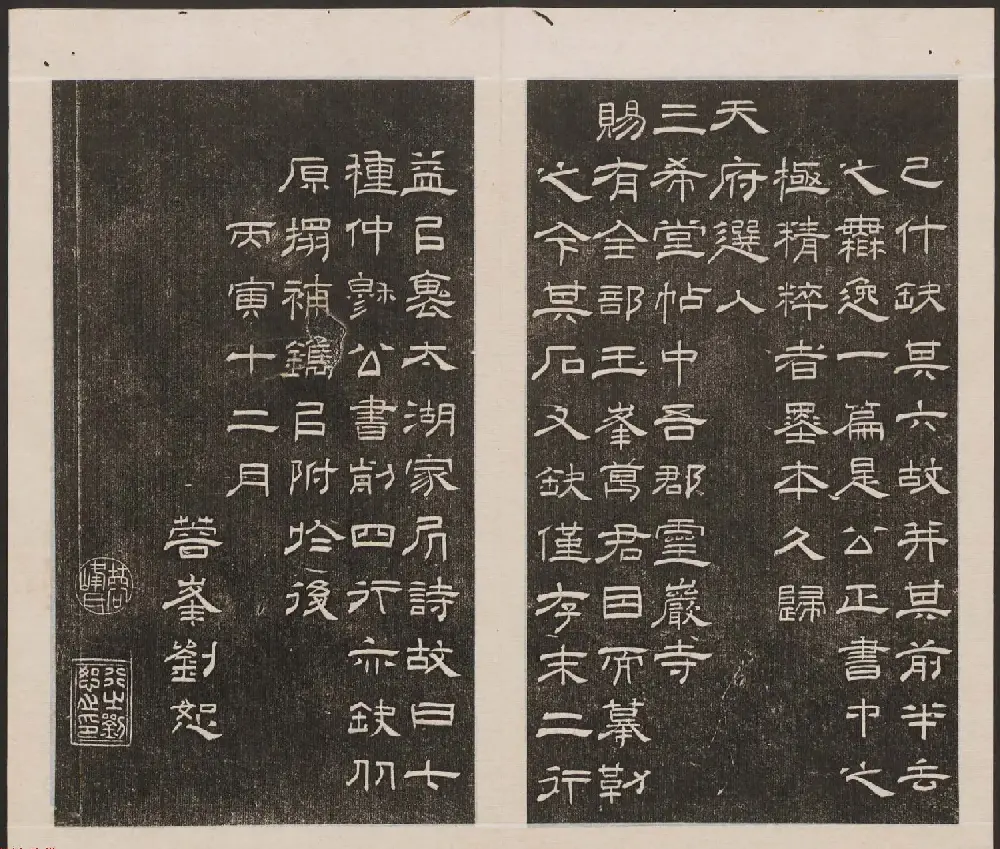 已什缺其六故并其前半去
之無逸一篇是公正書中之
極精粹者墨本久歸
天府選入
三希堂帖中吾郡靈巖寺
賜有全部玉峯萬君因而摹勒
之今其石又缺僅存末二行
益以裏太湖家居詩故曰七
種仲公書前四行亦缺仍
原搨補鐫以附於後
丙寅十二月
蓉峯劉恕